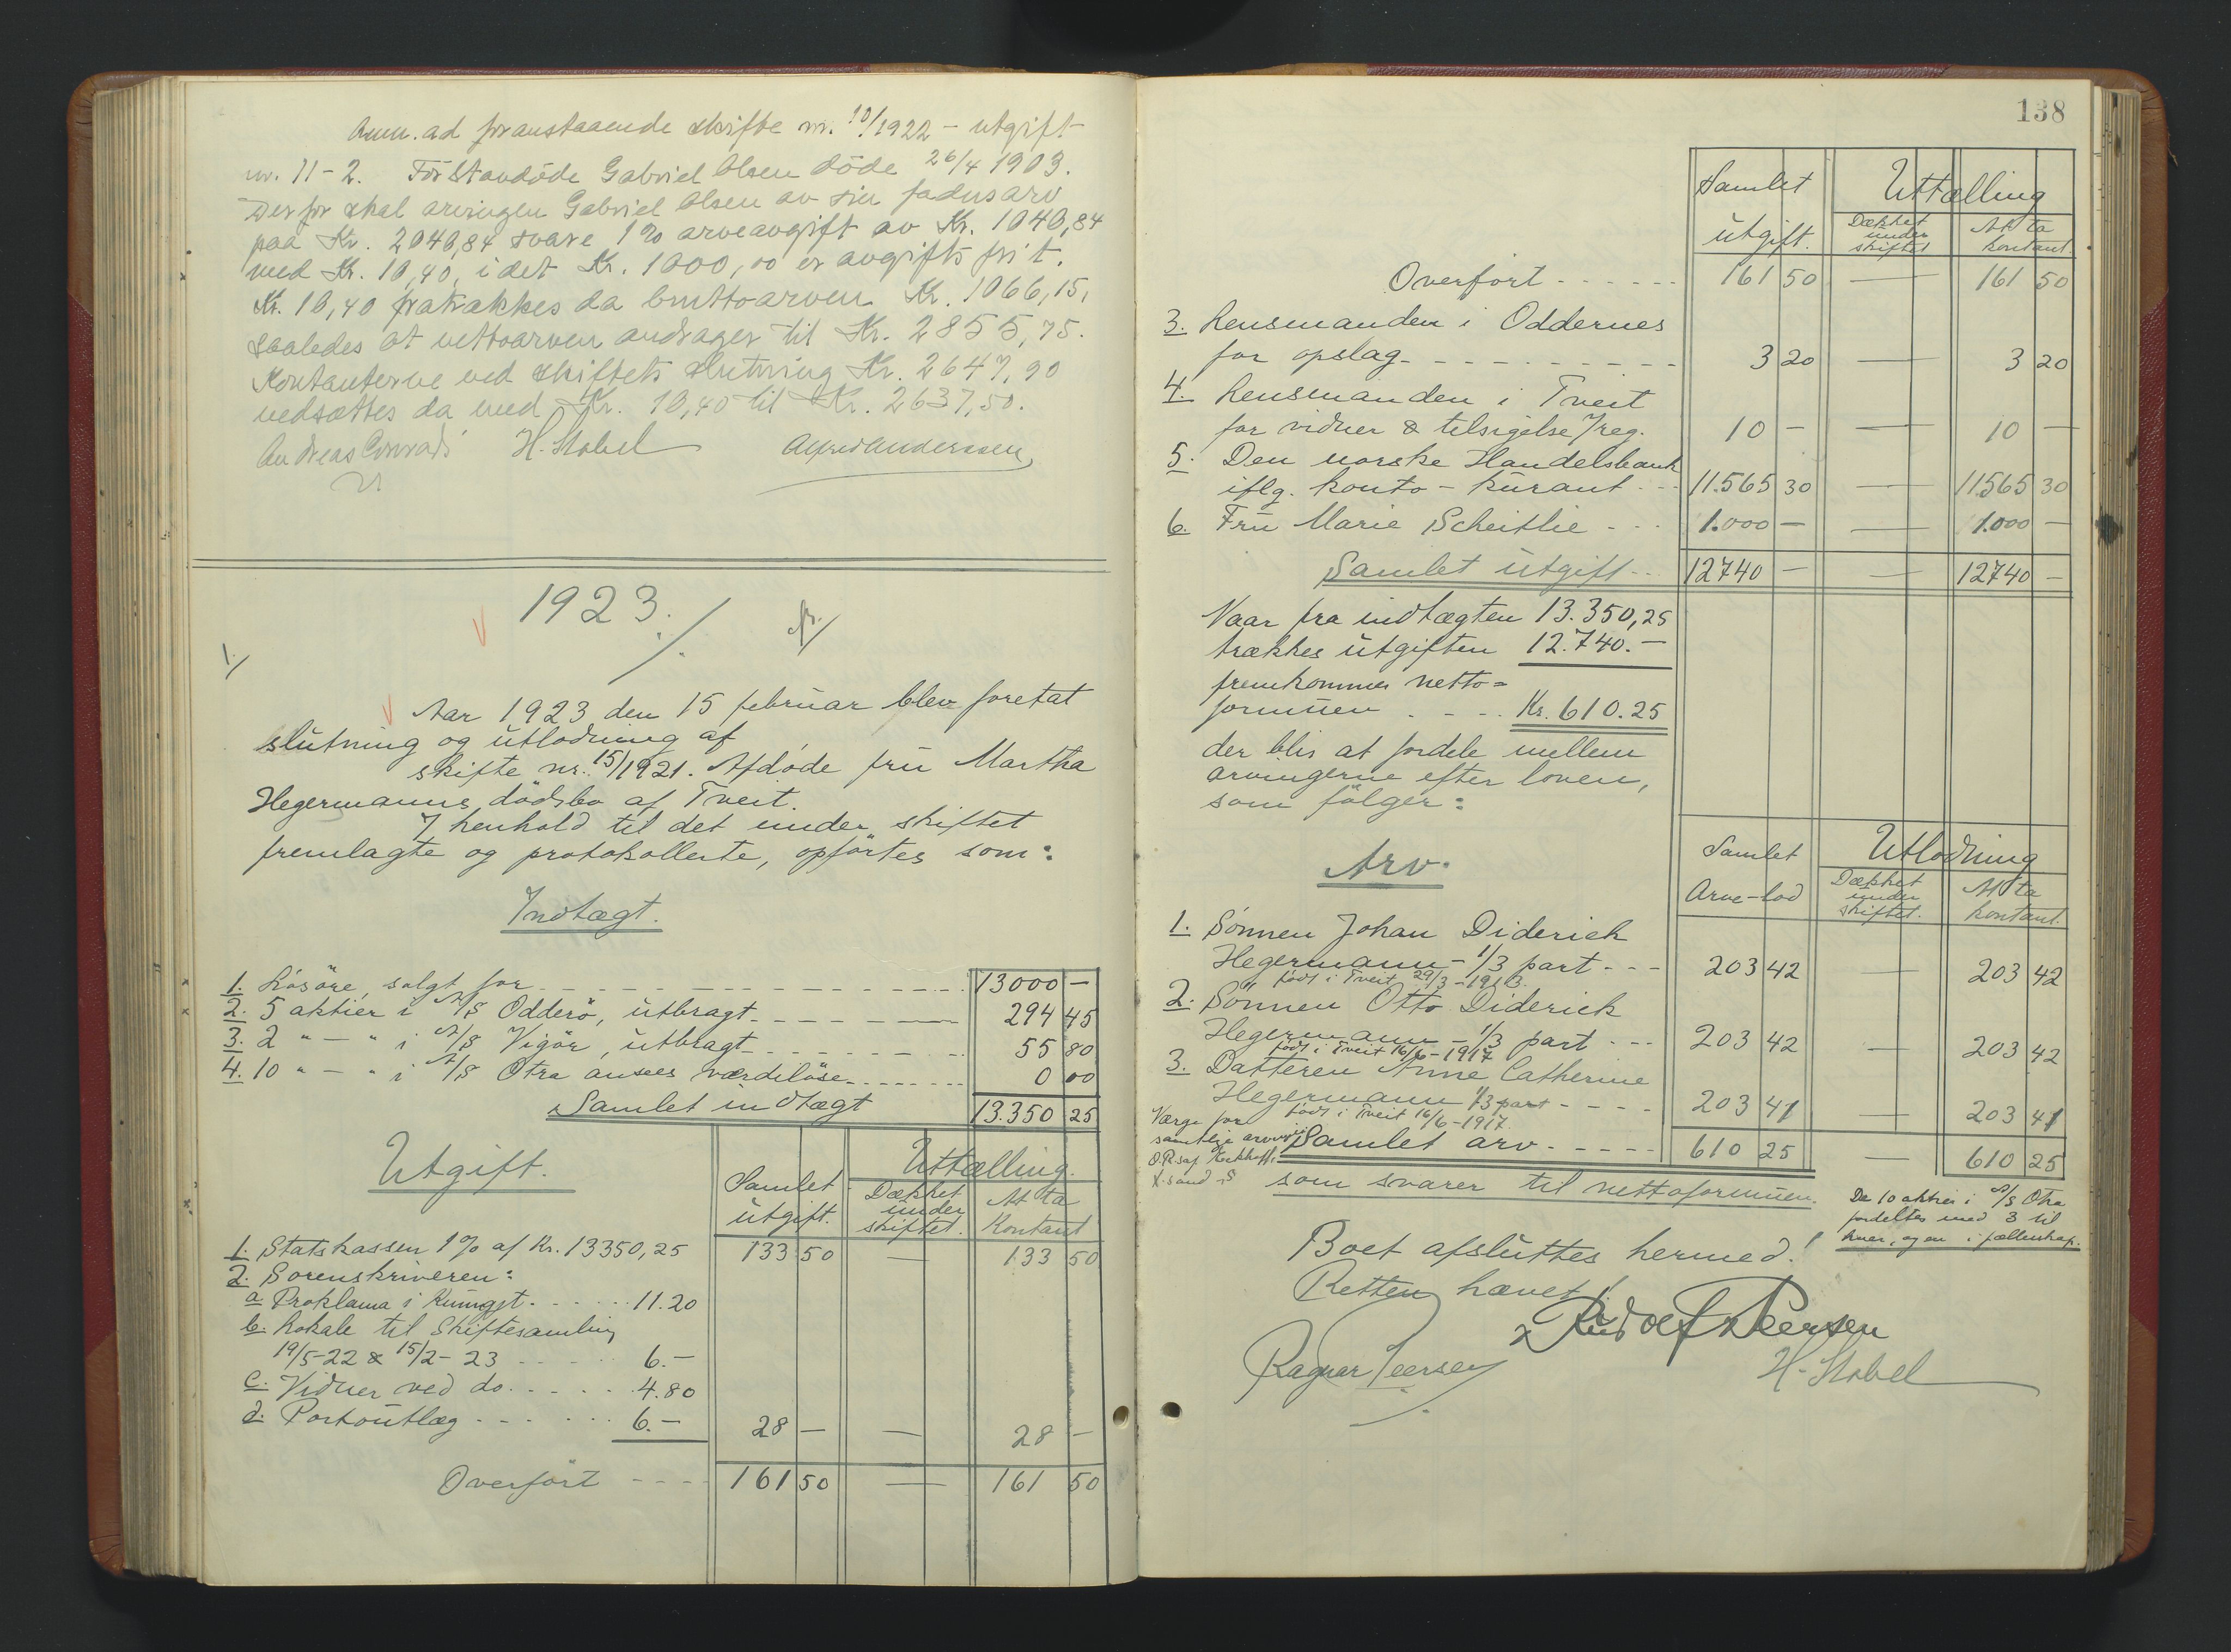 Anm. ad foranstaaende skifte nr. 10/1922 - utgift
nr. 11-2. Förstavdöde Gabriel Olsen döde 26/4 1903.
Derfor skal arvingen Gabriel Olsen av sin fadersarv
paa Kr. 2040,84 svare 1% arveavgift av Kr. 1040,84
med Kr. 10,40, idet Kr. 1000,00 er avgifts frit.
Kr. 10,40 fratrækkes da bruttoarven Kr. 1066,15,
saaledes at nettoarven andrager til Kr. 2855,75.
Kontanterne ved skiftets slutning Kr. 2647,90
nedsættes da med Kr. 10,40 til Kr. 2637,50.
Andreas Conradi H. Stabel Alfred Anderssen
1923.
1.
Aar 1923 den 15 februar blev foretat
slutning og utlodning af
skifte nr. 15/1921. Afdøde fru Martha
Hegermanns dödsbo af Tveit.
I henhold til det under skiftet
fremlagte og protokollerte, opførtes som:
Indtægt.
1. Løsøre, solgt for 13000 —
2. 5 aktier i A/S Odderö, utbragt 294 45
3. 2 " — " i A/S Vigör, utbragt 55 80
4. 10 " — " i A/S Otra ansees værdilöse 0 00
Samlet indtægt 13.350 25
Utgift.
Samlet utgift.
Uttælling.
Dækket under skiftet.
At ta Kontant
1. Statskassen 1% af Kr. 13350,25 133 50 — 133 50
2. Sorenskriveren:
a Proklama i Kunngjt. 11.20
b. Lokale til Skiftesamling
19/5-22 & 15/2-23 6.—
c. Vidner ved do. 4.80
d. Portoutlæg 6.— 28 — — 28 —
Overført 161 50 — 161 50
138
Samlet utgift.
Uttælling
Dækket under skiftet
At ta kontant.
Overført 161 50 — 161 50
3. Lensmanden i Oddernes
for opslag 3 20 — 3 20
4. Lensmanden i Tveit
for vidner & tilsigelse /reg. 10 — — 10 —
5. Den norske Handelsbank
iflg. konto-kurant 11.565 30 — 11565 30
6. Fru Marie Scheitlie 1.000 — — 1.000 —
Samlet utgift 12740 — — 12740 —
Naar fra indtægten 13.350,25
trækkes utgiften 12.740.—
fremkommer netto=
formuen Kr. 610.25
der blir at fordele mellem
arvingerne efter loven,
som følger:
Arv.
Samlet Arve-lod
Utlodning
Dækket under skiftet.
At ta kontant.
1. Sønnen Johan Diderich
Hegermann - 1/3 part 203 42 — 203 42
født i Tveit 29/3-1913.
2. Sønnen Otto Diderich
Hegermann - 1/3 part 203 42 — 203 42
født i Tveit 16/6-1917
3. Datteren Anne Catherine
Hegermann 1/3 part 203 41 — 203 41
født i Tveit 16/6-1917.
Værge for
samtlige arvinger
O.R.saf.
X.sand S
Samlet arv 610 25 — 610 25
som svarer til nettoformuen.
De 10 aktier i A/S Otra
fordeltes med 3 til
hver, og en i fællenskap.
Boet afsluttes hermed.
Retten hævet.
Rudolf Peersen
Ragnar Peersen
H. Stabel